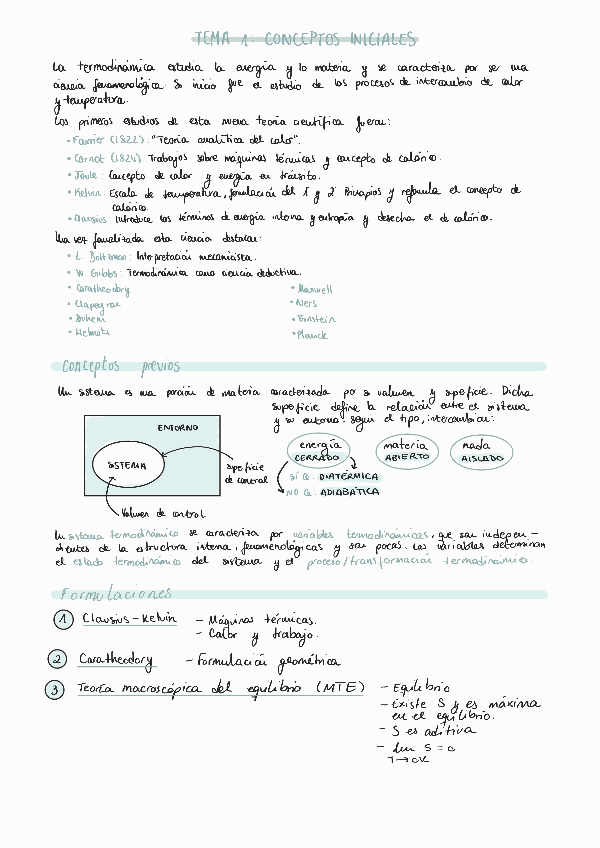 TEMA 1: CONCEPTOS INICIALES
La termodinámica estudia la energía y la materia y se caracteriza por ser una
ciencia fenomenológica. Su inicio fue el estudio de los procesos de intercambio de calor
y temperatura.
Los primeros estudios de esta nueva teoría científica fueron:
• Fourier (1822): "Teoría analítica del calor".
• Carnot (1824) Trabajos sobre máquinas térmicas y concepto de calórico.
• Joule: Concepto de calor y energía en tránsito.
• Kelvin: Escala de temperatura, formulación del 1 y 2 Principios y reformula el concepto de
calórico.
• Clausius: Introduce los términos de energía interna y entropía y desecha el de calórico.
Una vez formalizada esta ciencia destacan:
• L. Boltzman: Interpretación mecanicista.
• W Gibbs: Termodinámica como ciencia deductiva.
• Caratheodory
• Maxwell
• Clapeyron
• Ners
• Duhem
• Einstein
• Helmotz
• Planck
Conceptos previos
Un sistema es una porción de materia caracterizada por su volumen y superficie. Dicha
superficie define la relación entre el sistema
y su entorno. Según el tipo, intercambian:
ENTORNO
SISTEMA
superficie
de control
Volumen de control
energía
CERRADO
materia
ABIERTO
nada
AISLADO
SÍ Q: DIATÉRMICA
NO Q: ADIABÁTICA
Un sistema termodinámico se caracteriza por variables termodinámicas, que son indepen-
dientes de la estructura interna, fenomenológicas y son pocas. Las variables determinan
el estado termodinámico del sistema y el proceso/transformación termodinámica.
Formulaciones
1 Clausius-Kelvin - Máquinas térmicas.
- Calor y trabajo.
2 Caratheodory - Formulación geométrica
3 Teoría macroscópica del equilibrio (MTE) - Equilibrio
- Existe S y es máxima
en el equilibrio.
- S es aditiva
- lim S = 0
T→0K